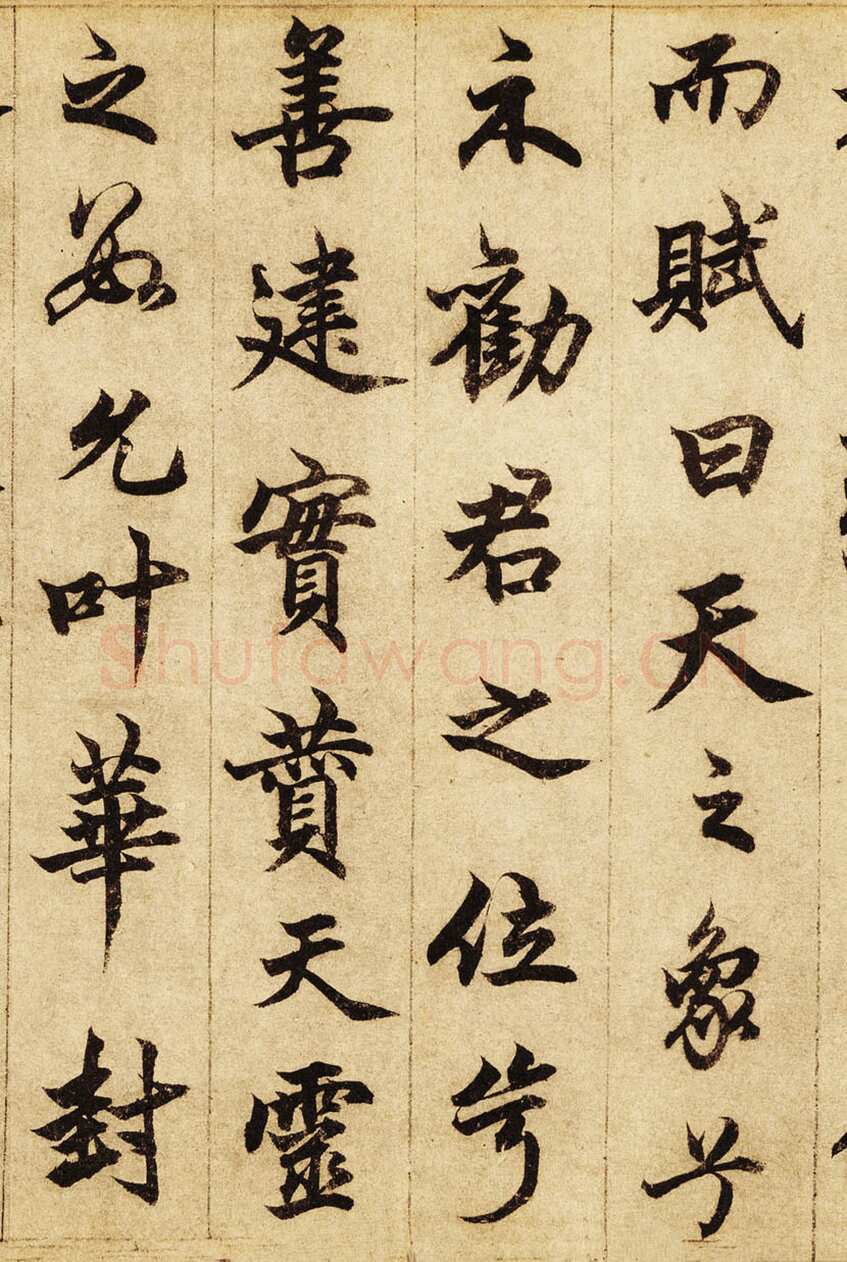 而賦曰天之象兮
示勸君之位兮
善建實賁天靈
之允叶華封
Shufawang.CN